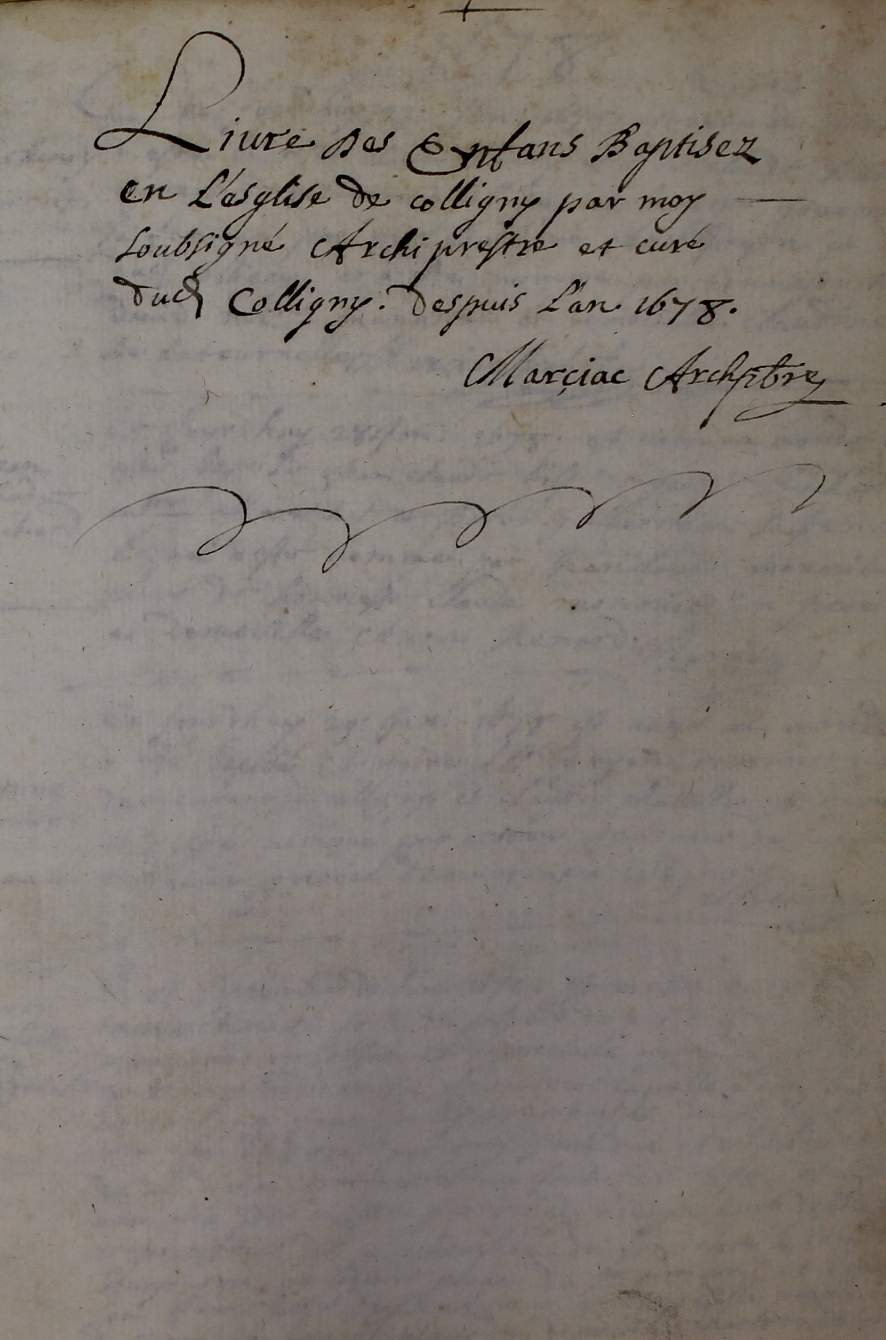 Liure des Enfans Baptisez
en L'esglise de colligny par moy
soubsigné Archiprestre et curé
dud Colligny. despuis L'an 1678.
Marciac Archptbre